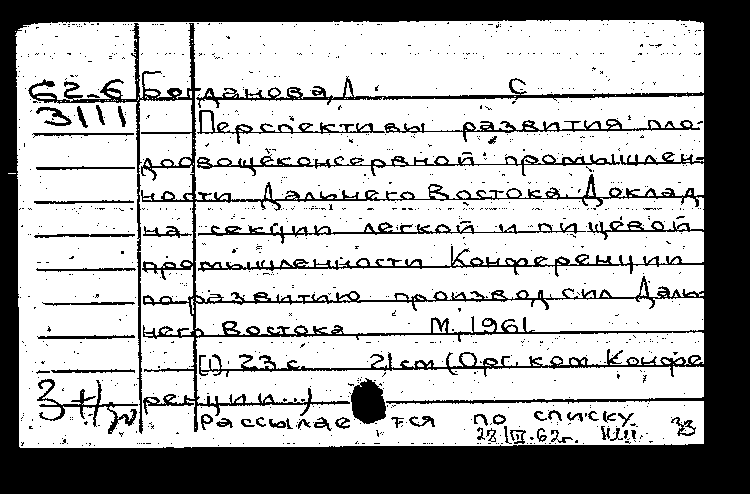 62-6 Богданова, Л. С
3111 Перспективы развития пло-
доовощеконсервной промышлен-
ности Дальнего Востока. Доклад
на секции легкой и пищевой
промышленности Конференции
по развитию производ. сил Даль-
него Востока. М., 1961.
[1], 23 с. 21 cm (Орг. ком. Конфе
ренции...)
Рассылается по списку
28/III-62г.